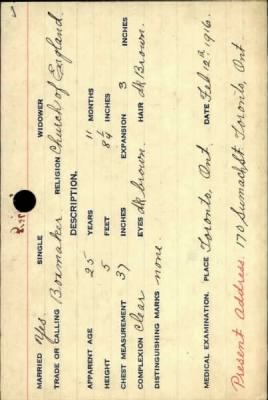 MARRIED Yes. SINGLE WIDOWER
TRADE OR CALLING Boxmaker RELIGION Church of England.
DESCRIPTION.
APPARENT AGE 25 YEARS 11 MONTHS
HEIGHT 5 FEET 8¼ INCHES
CHEST MEASUREMENT 37 INCHES EXPANSION 3 INCHES
COMPLEXION Clear EYES dk brown. HAIR dk Brown.
DISTINGUISHING MARKS none
MEDICAL EXAMINATION. PLACE Toronto, Ont. DATE Feb 12th 1916.
Present Address. 170 Sumach St. Toronto, Ont.